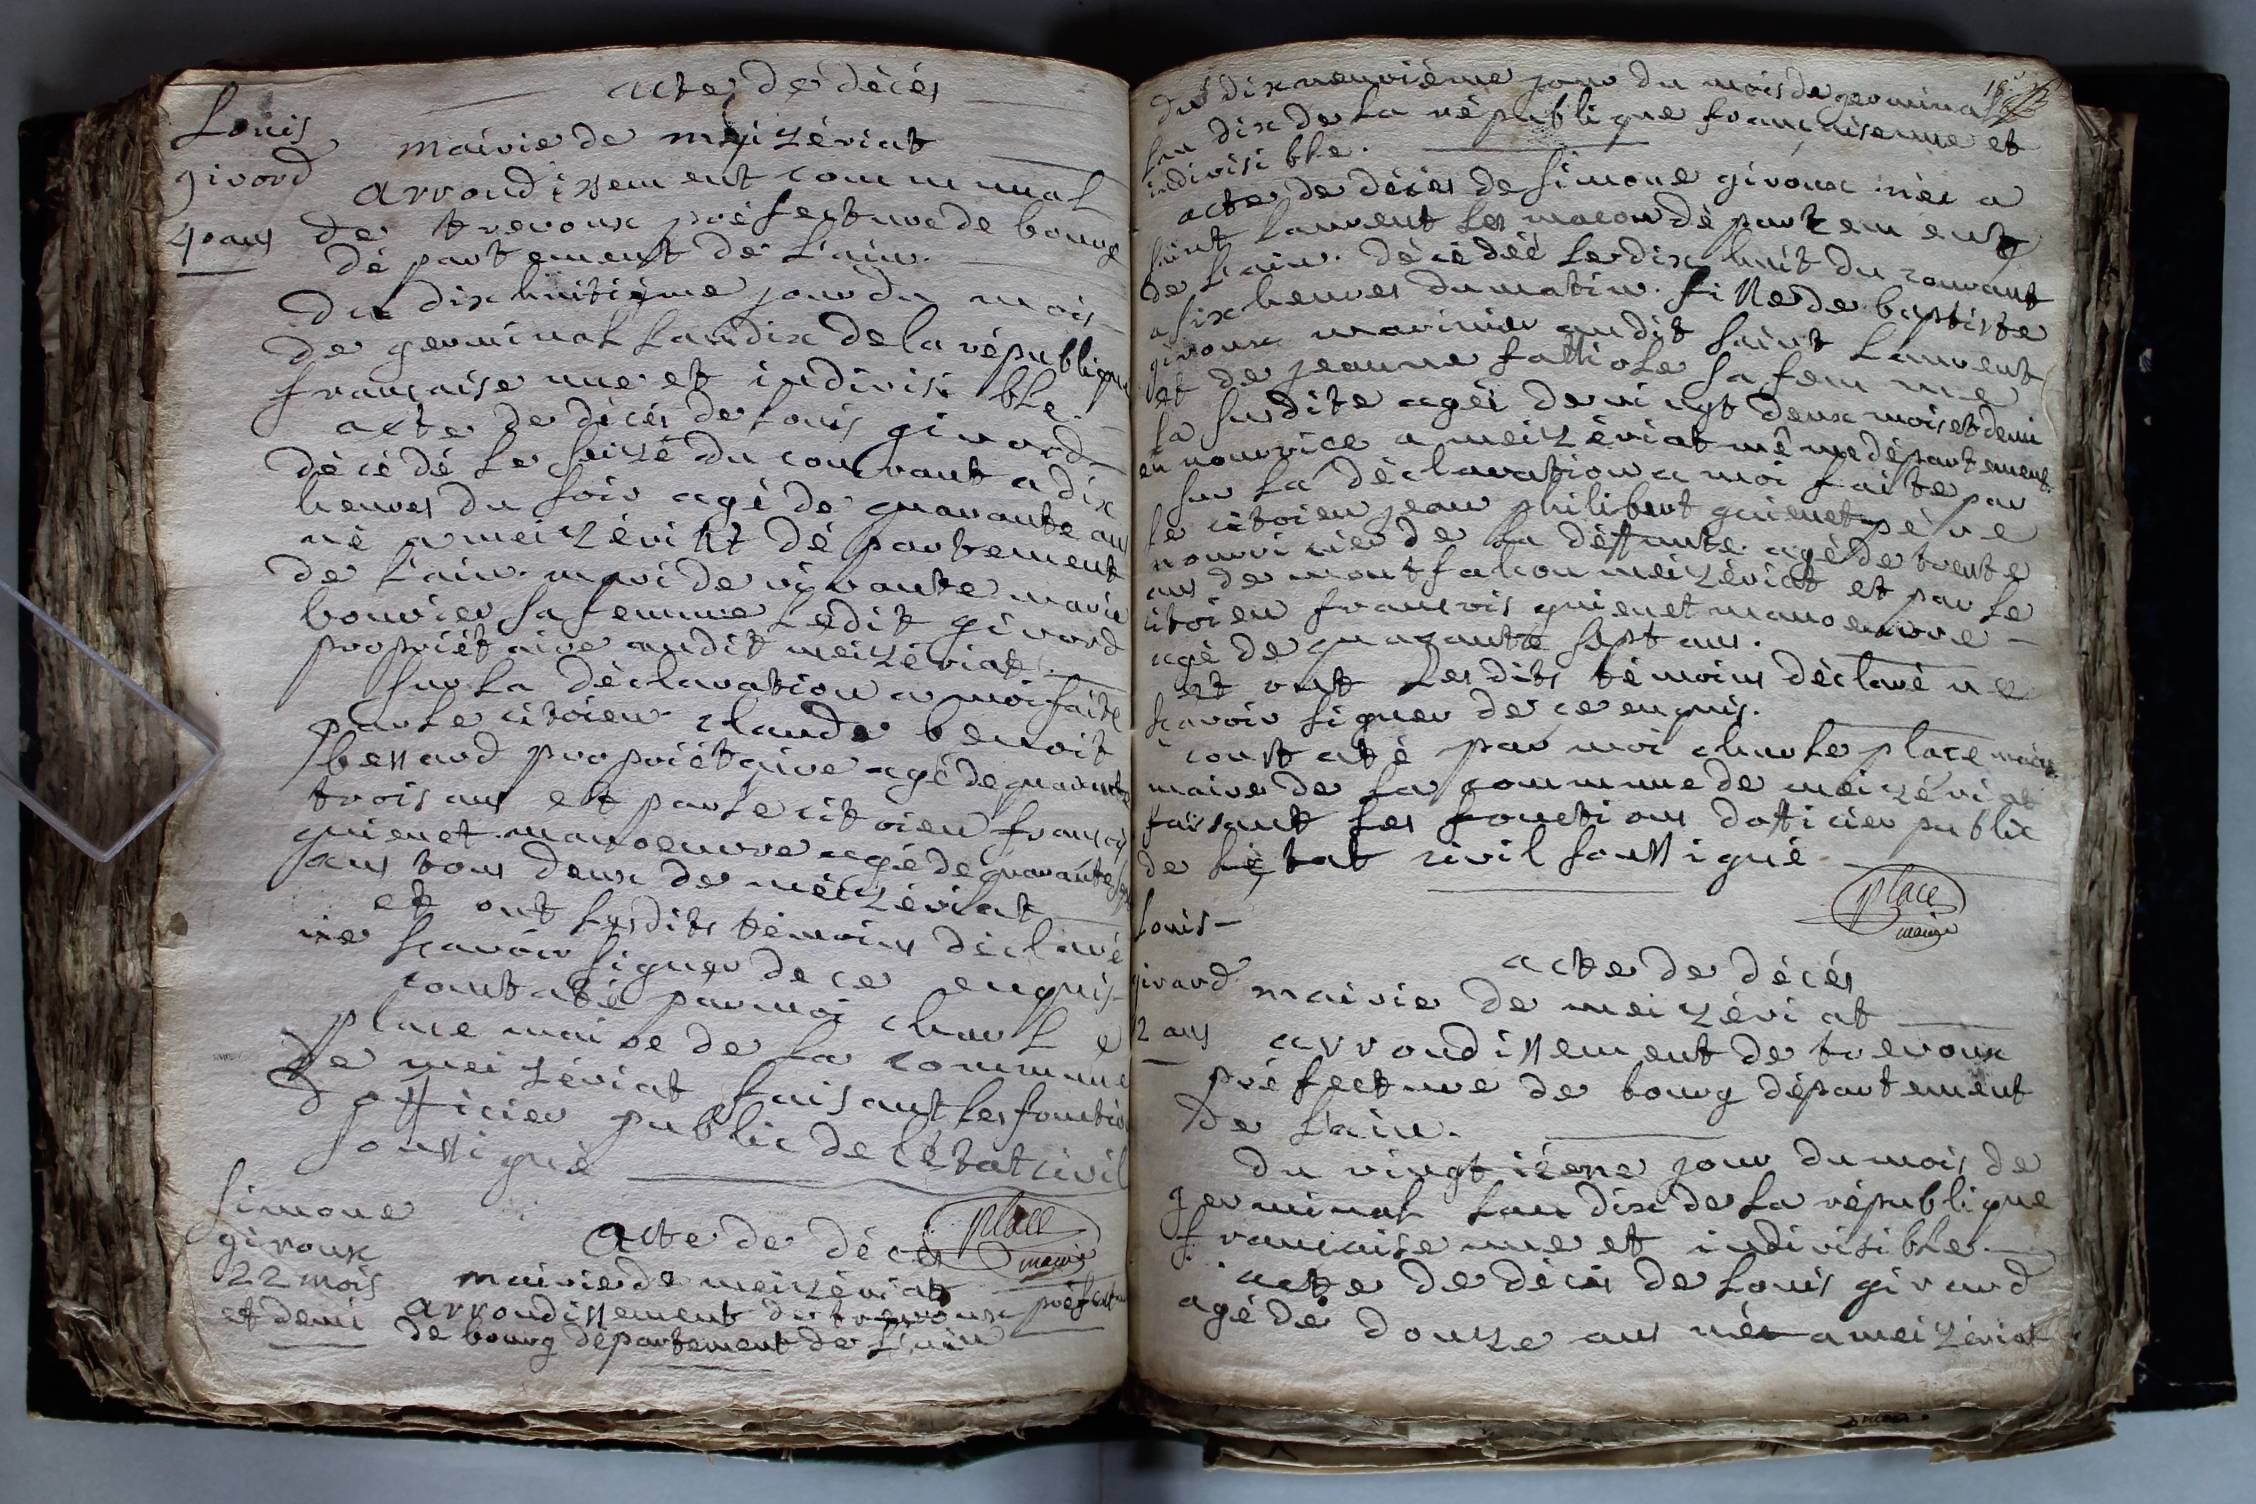 acte de décés
Louis
girord
40 ans
mairie de meizériat
arrondissement communal
de trevoux préfecture de bourg
département de L'ain.
Du dix huitième jour du mois
de germinal L'an dix de la république
française une et indivisible.
acte de décés de Louis girord
décédé Le seize du courant a dix
heures du soir agé de quarante ans
né a meizériat département
de L'ain. mari de vivante marie
bouvier sa femme Ledit girord
propriétaire audit meizériat.
sur La déclaration a moi faite
par Le citoien claude benoit
bessard propriétaire agé de quarante
trois ans et par Le citoien françois
guienet manoeuvre agé de quarante sept
ans tous deux de meizériat
et ont Lesdits témoins déclaré
ne scavoir signer de ce enquis
constaté par moi charLe
place maire de La commune
de meizériat faisant Les fonction
d'officier public de l'état civil
soussigné
place
maire
simone
giroux
22 mois
et demi
acte de décés
mairie de meizériat
arrondissement de trevoux préfecture
de bourg département de L'ain
18
du dix neuvième jour du mois de germinal
Lan dix de La république françaisenne et
indivisibLe.
acte de décés de simone giroux née a
saint Laurent Les macon département
de L'ain. décédée Le dix huit du courant
a six heures du matin. fiLLe de baptiste
giroux marinier audit saint Laurent
et de jeanne fattioLe sa femme
La susdite agée de vingt deux mois et demi
en nourrice a meizériat même département.
sur La déclaration a moi faite par
Le citoien jean philibert guienet père
nourricier de La déffunte agé de trente
ans de montfalcon meizériat et par Le
citoien françois guienet manoeuvre
agé de quarante sept ans.
et ont Lesdits témoins déclaré ne
scavoir signer de ce enquis.
constaté par moi charLe place maire
maire de La commune de meizériat
faisant Les fonctions dofficier public
de L'état civil soussigné
place
maire
Louis
girard
12 ans
acte de décés
mairie de meizériat
arrondissement de trevoux
préfecture de bourg département
de L'ain.
du vingtième jour du mois de
germinal Lan dix de La république
française une et indivisibLe.
acte de décés de Louis girard
agé de douze ans né a meizériat